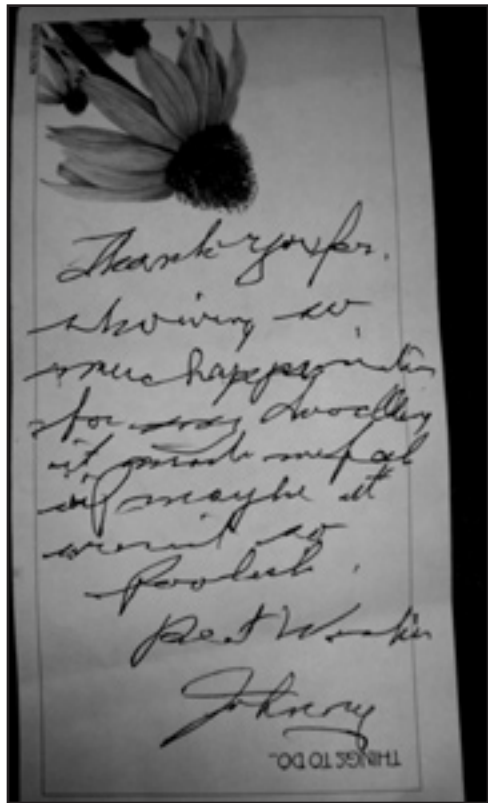 Thank you for
showing so
much appreciation
for my doodling
it made me feel
as if maybe it
wasn't so
foolish.
Best Wishes
Johnny
THINGS TO DO...